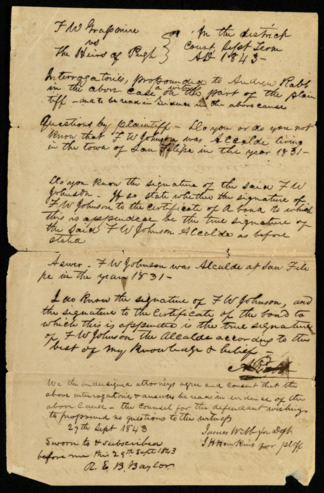 F W Grassmeyer
vs
The Heirs of Pugh
In the district
Court, Sept Term
AD 1843 –
Interrogatories, propounded to Andrew Rabb
in the above case on the part of the plain
tiff – to be read in Evidence in the above cause
Questions by plaintiff – Do you or do you not
Know that F W Johnson was Alcalde living
in the town of San Filipe in the year 1831 –
Do you Know the signature of the said F W
Johnson – If so state whether the signature of
F W Johnson to the Certificate of a bond to which
this is appended be the true signature of
the said F W Johnson Alcalde as before
stated
Answer. F W Johnson was Alcalde at San Fili
pe in the year 1831 –
I do Know the signature of F W Johnson, and
the signature to the Certificate of the bond to
which this is appended is the true signature
of F W Johnson the Alcalde according to the
best of my Knowledge & belief
A Rabb
We the undersigned attorneys agree and consent that the
above interrogatories & answers be read in evidence of the
above Cause – the Counsel for the defendant wishing
to propound no questions to the witness
29th Sept 1843
James Webb for Deft
Sworn to & subscribed
before me this 29th Sept 1843
R. E. B. Baylor
for plff